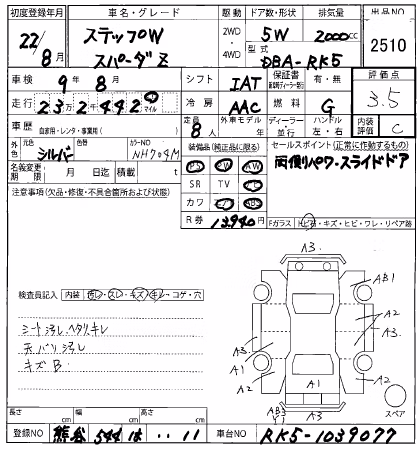 初度登録年月 車名・グレード 駆動 ドア数・形状 排気量 出品NO
22/8月 ステップW スパーダZ 2WD・4WD 5W 2000cc 2510
型式 DBA-RK5
車検 9年8月 シフト IAT 保証書 有・無 評価点
走行 232442 km マイル 冷房 AAC 燃料 G 3.5
車歴 自家用・レンタ・事業用( ) 定員 8人 外車モデル/年 ディーラー・並行 ハンドル 左・右 内装 C
外色 元色 シルバー 色 カラーNO NH704M 装備品(純正品に限る) セールスポイント(正常に作動するもの)
名義変更期限 月 日迄 積載 t PS PW 両側パワースライドドア
注意事項(欠品・修復・不具合箇所および状態) SR TV
カワ ABS
R券 13940円 Fガラス トビ石・キズ・ヒビ・ワレ・リペア跡
検査員記入 内装 汚レ・スレ・キズ・キレ・コゲ・穴
シート汚レ、ヘタリ、キレ
天バリ汚レ
キズB
A3
AB1
A2
A3
A3
A1
A2
A1
A2
A3
スペア
長さ cm 幅 cm 高さ cm
登録NO 熊谷 544 は ・・11 車台NO RK5-1039077